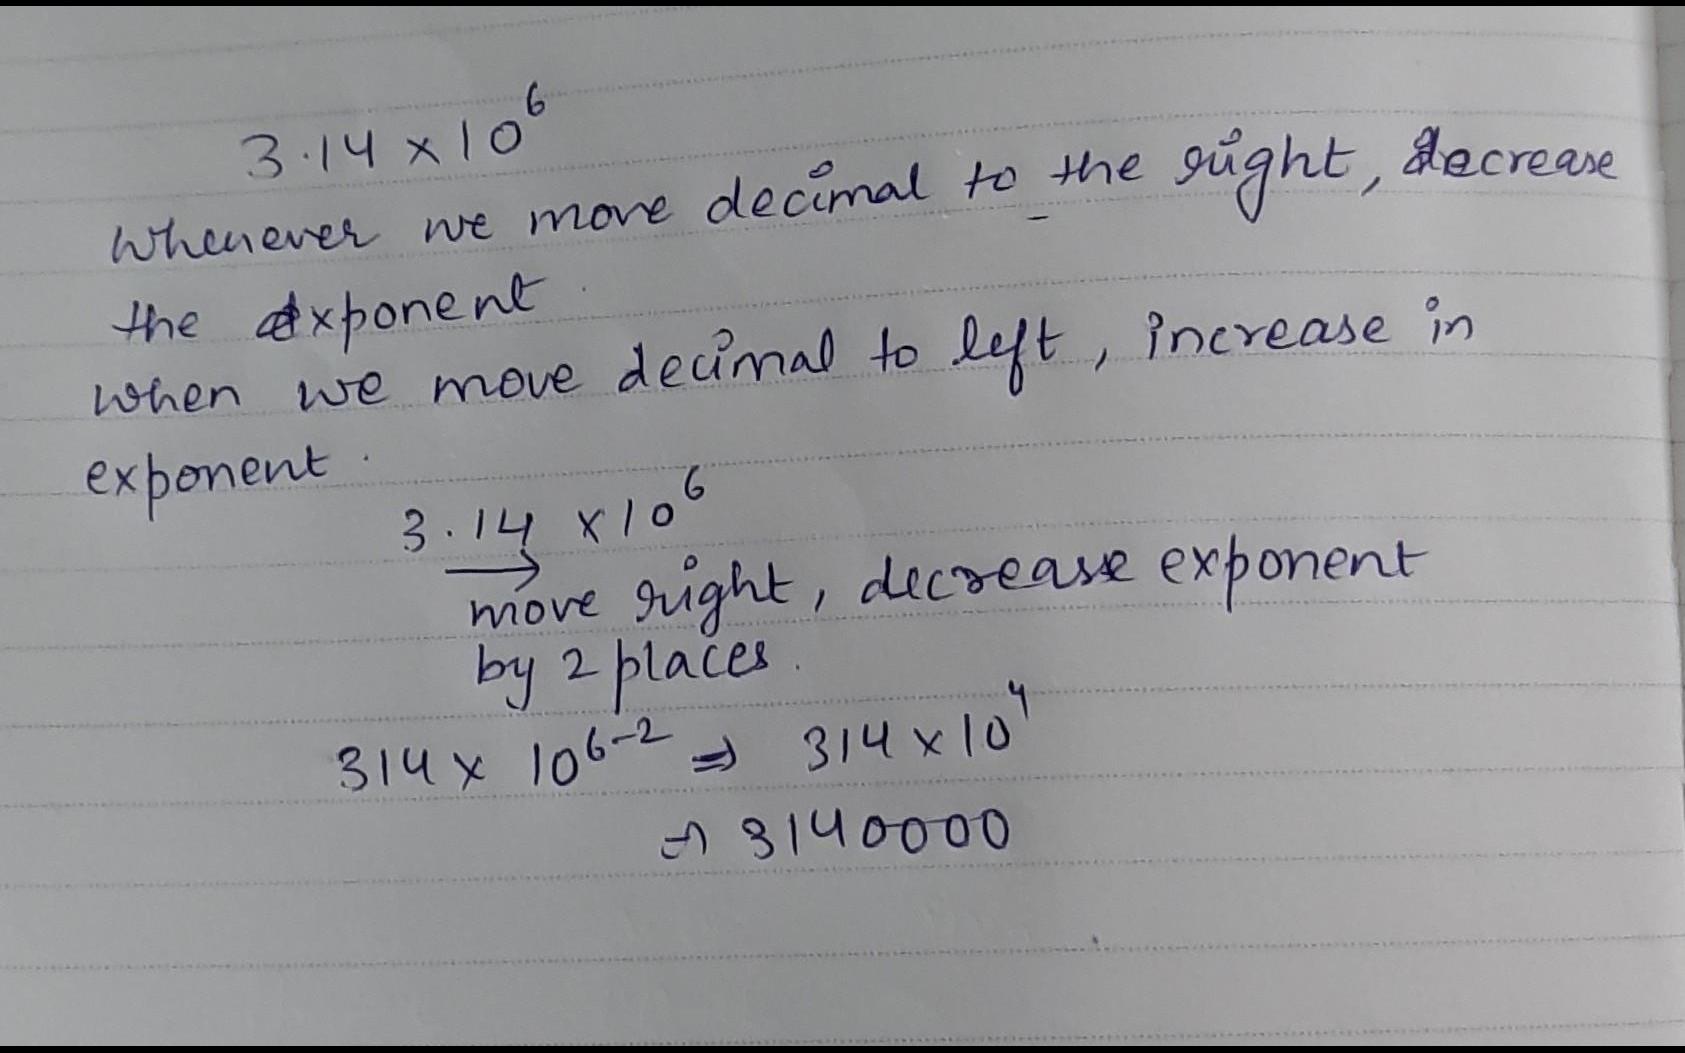 3.14 × 10⁶
Whenever we move decimal to the right, decrease
the exponent.
when we move decimal to left, increase in
exponent.
3.14 × 10⁶
→
move right, decrease exponent
by 2 places.
314 × 10⁶⁻² ⇒ 314 × 10⁴
⇒ 3140000